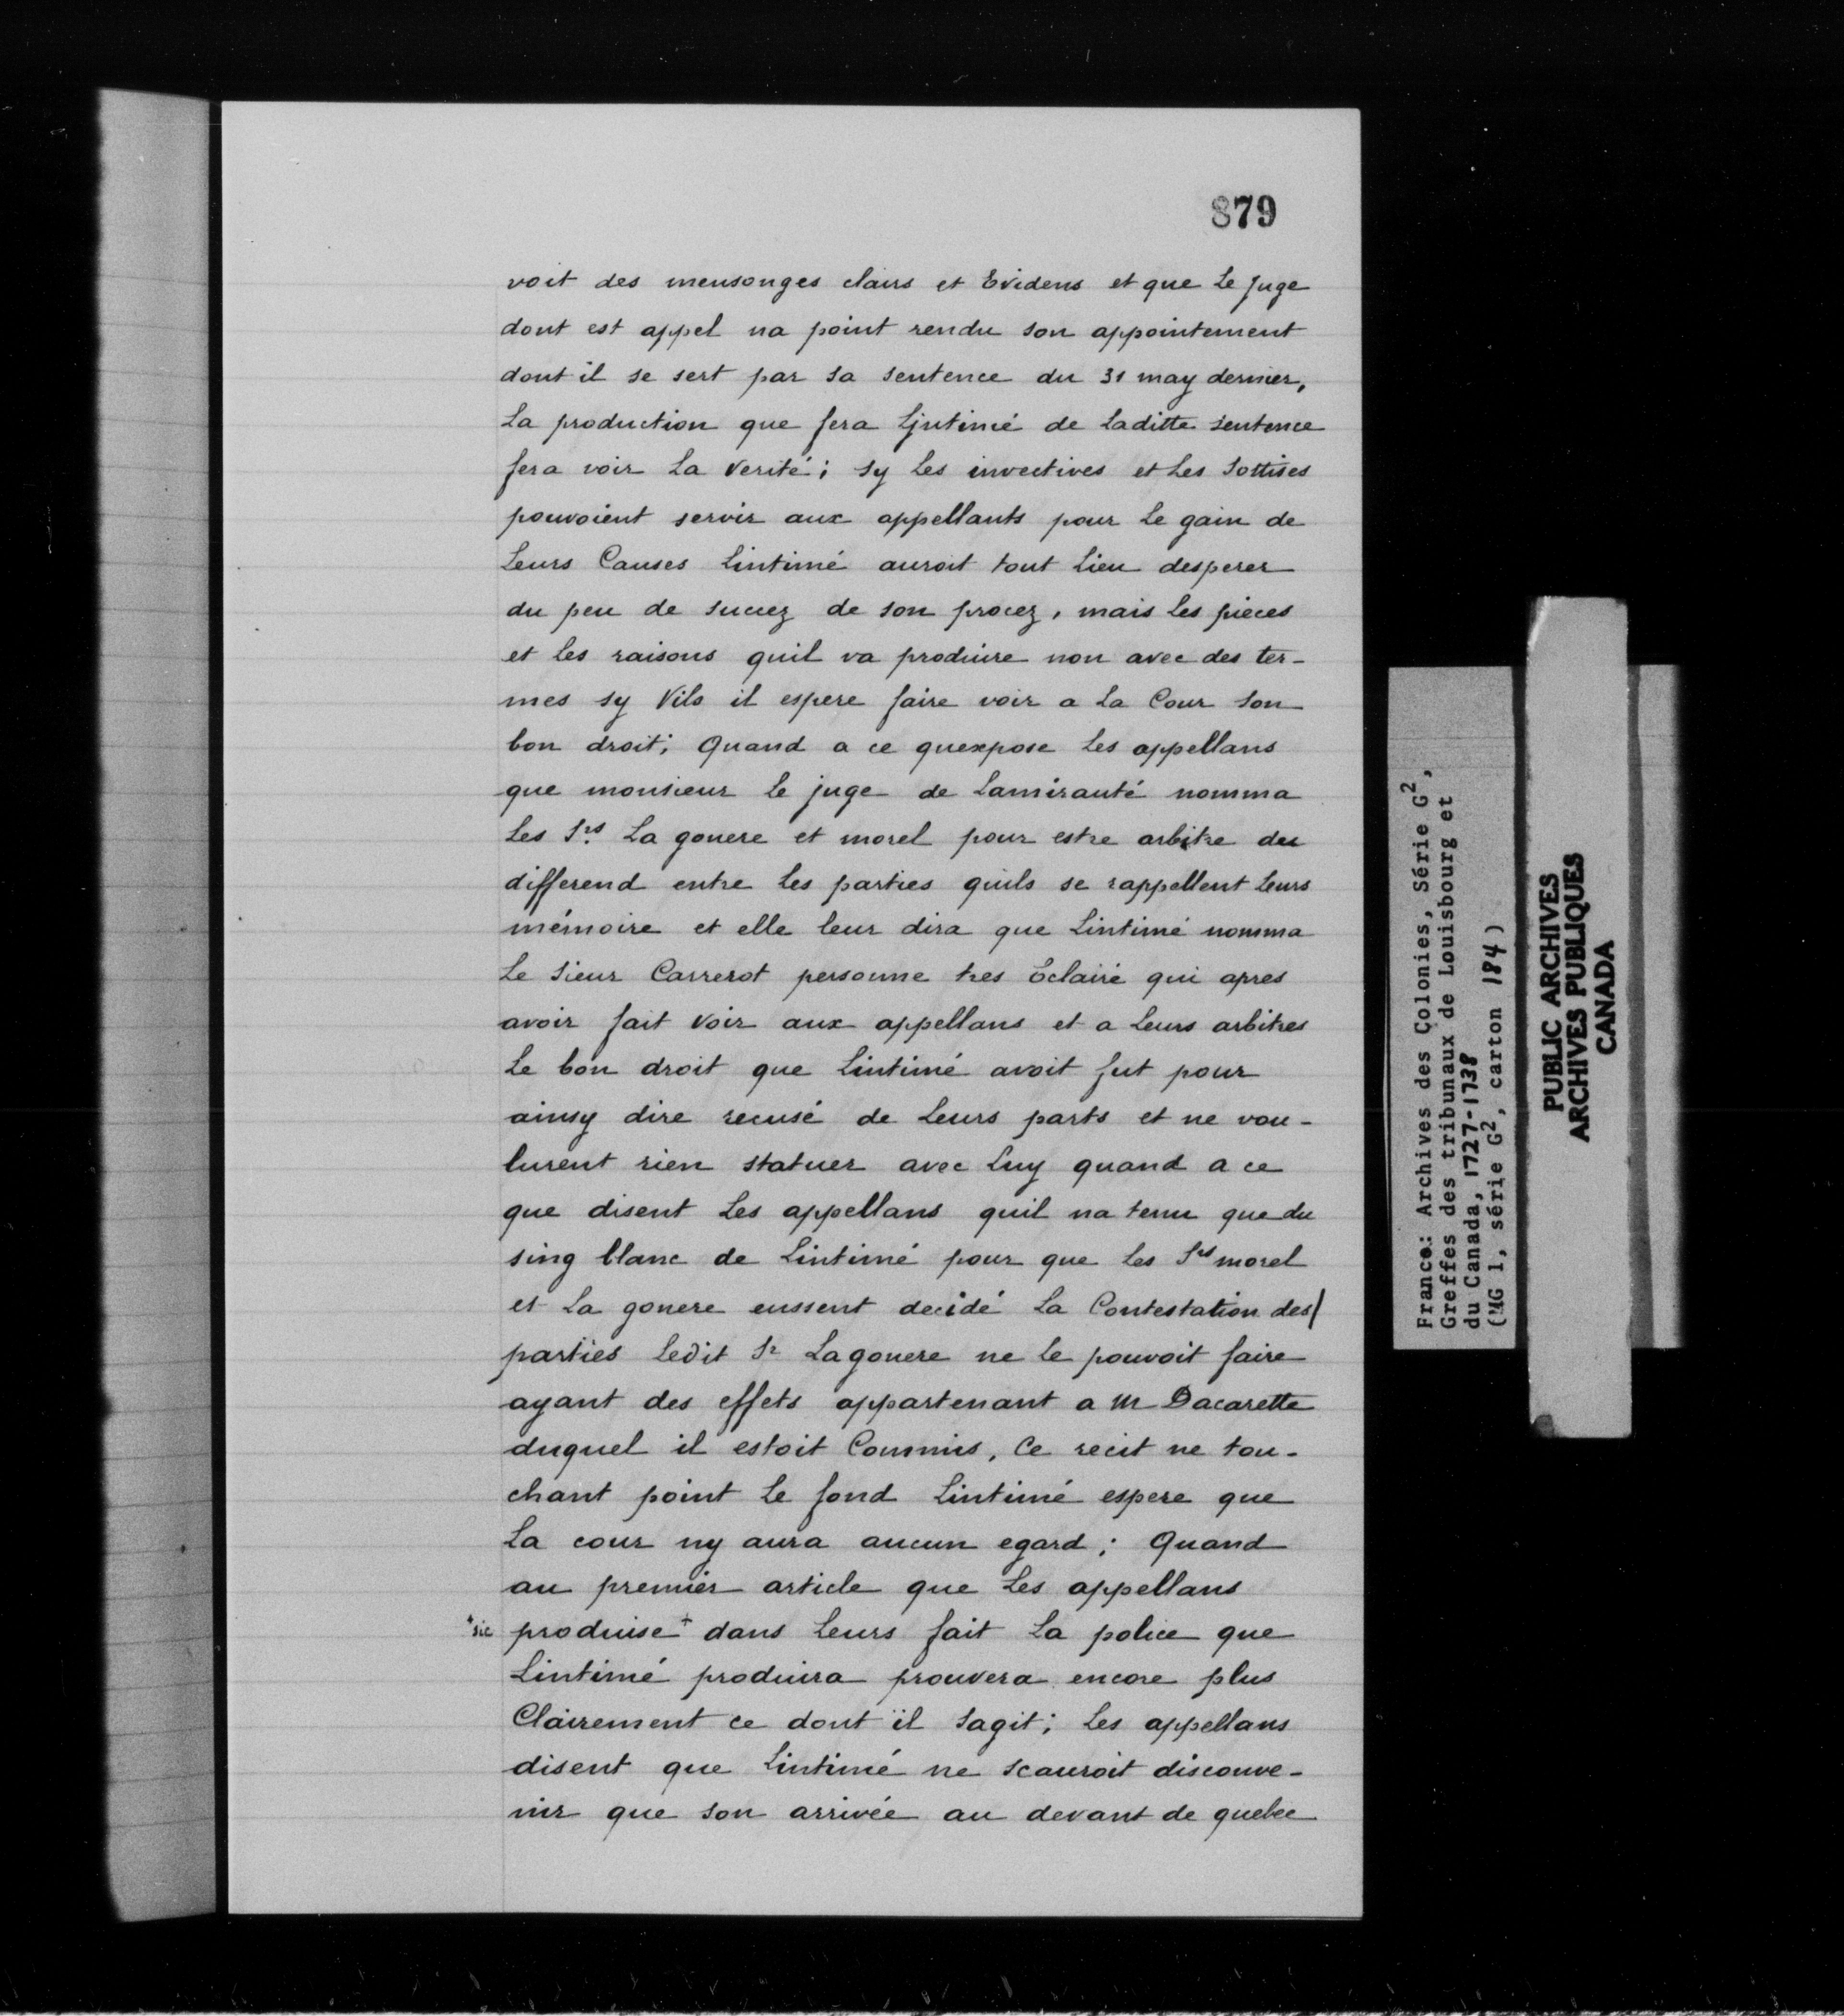 879
voit des mensonges clairs et Evidens et que Le Juge
dont est appel na point rendu son appointement
dont il se sert par sa sentence du 31 may dernier,
La production que fera Ljntimé de Laditte sentence
fera voir La Verité; sy Les invectives et Les sottises
pouvoient servir aux appellants pour Le gain de
Leurs Causes Lintimé auroit tout Lieu desperer
du peu de succez de son procez, mais Les pieces
et les raisons quil va produire non avec des ter-
mes sy Vils il espere faire voir a La Cour Son
bon droit; Quand a ce quexpose Les appellans
que monsieur Le juge de Lamirauté nomma
Les Srs La gonere et morel pour estre arbitre du
differend entre Les parties quils se rappellent Leurs
mémoire et elle leur dira que Lintimé nomma
Le Sieur Carrerot personne tres Eclairé qui apres
avoir fait Voir aux appellans et a Leurs arbitres
Le bon droit que Lintimé avoit fut pour
ainsy dire recusé de Leurs parts et ne vou-
lurent rien statuer avec Luy quand a ce
que disent Les appellans quil na tenu que du
sing blanc de Lintimé pour que Les Srs morel
et La gonere eussent decidé La Contestation des/
parties Ledit Sr Lagonere ne le pouvoit faire
ayant des effets appartenant a M Dacarette
duquel il estoit Commis, Ce recit ne tou-
chant point Le fond Lintimé espere que
La cour ny aura aucun egard; Quand
au premier article que Les appellans
+sic produise+ dans Leurs fait La police que
Lintimé produira prouvera encore plus
Clairement ce dont il Sagit; Les appellans
disent que Lintimé ne scauroit disconve-
nir que son arrivée au devant de quebec
France: Archives des Colonies, Série G2,
Greffes des tribunaux de Louisbourg et
du Canada, 1727-1738
(MG 1, série G2, carton 184)
PUBLIC ARCHIVES
ARCHIVES PUBLIQUES
CANADA